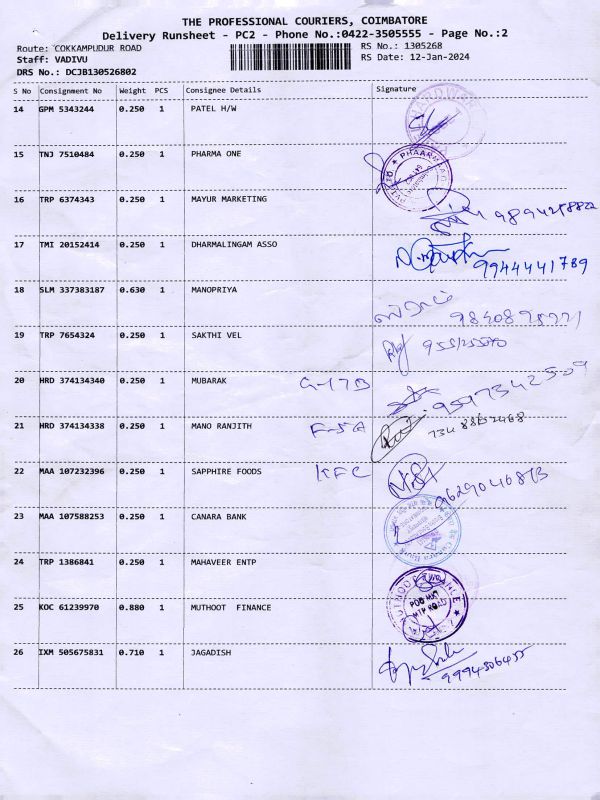 THE PROFESSIONAL COURIERS, COIMBATORE
Delivery Runsheet - PC2 - Phone No.:0422-3505555 - Page No.:2
Route: COKKAMPUDUR ROAD
RS No.: 1305268
Staff: VADIVU
RS Date: 12-Jan-2024
DRS No.: DCJB130526802
S No Consignment No Weight PCS Consignee Details Signature
14 GPM 5343244 0.250 1 PATEL H/W
15 TNJ 7510484 0.250 1 PHARMA ONE
16 TRP 6374343 0.250 1 MAYUR MARKETING
17 TMI 20152414 0.250 1 DHARMALINGAM ASSO 9944441789
18 SLM 337383187 0.630 1 MANOPRIYA
19 TRP 7654324 0.250 1 SAKTHI VEL
20 HRD 374134340 0.250 1 MUBARAK G-17B
21 HRD 374134338 0.250 1 MANO RANJITH F-5A
22 MAA 107232396 0.250 1 SAPPHIRE FOODS KFC
23 MAA 107588253 0.250 1 CANARA BANK
24 TRP 1386841 0.250 1 MAHAVEER ENTP
25 KOC 61239970 0.880 1 MUTHOOT FINANCE
26 IXM 505675831 0.710 1 JAGADISH 9994306455